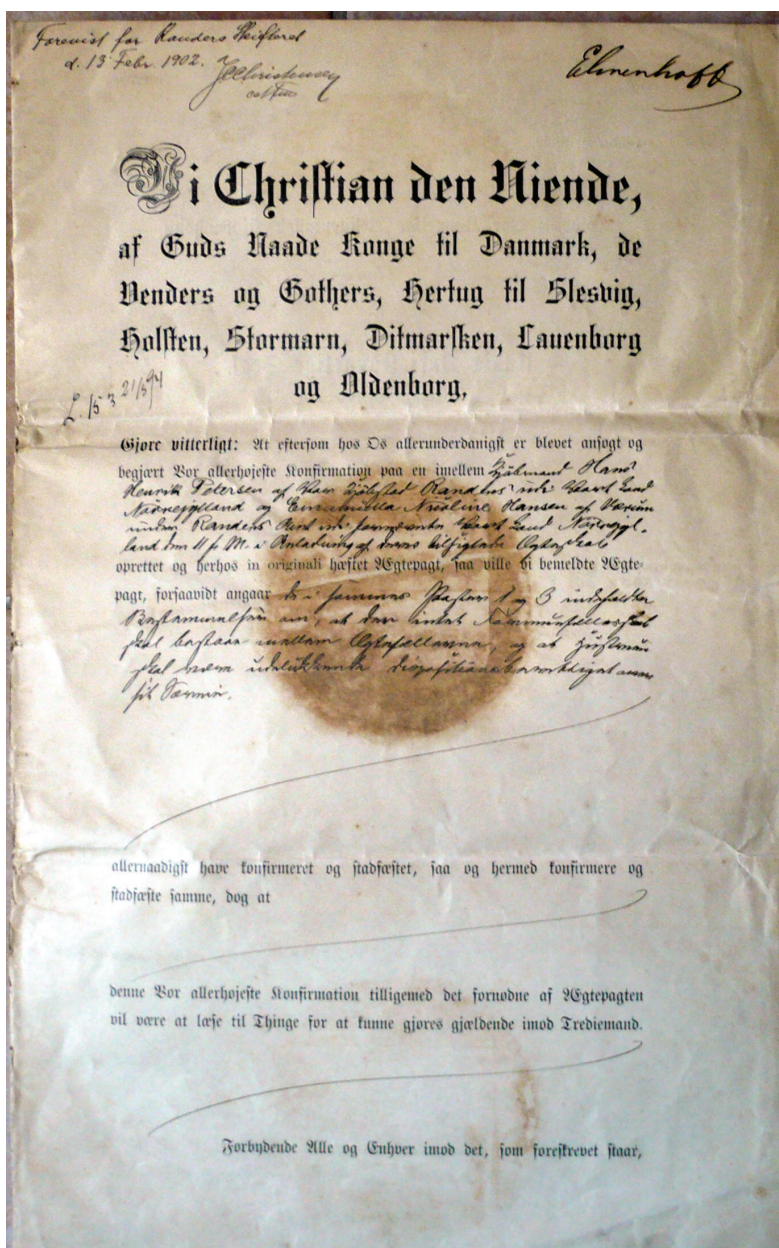 Forevist for Randers Skifteret
d. 13 Febr. 1902.
Elmenhoff
Vi Christian den Niende,
af Guds Naade Konge til Danmark, de
Venders og Gothers, Hertug til Slesvig,
Holsten, Stormarn, Ditmarsken, Lauenborg
og Oldenborg,
L. 15 3 21/5 94
Gjøre vitterligt: At eftersom hos Os allerunderdanigst er blevet ansøgt og
begjært Vor allerhøjeste Konfirmation paa en imellem Kjøbmand Hans
Henrik Petersen af Vor Kjøbstad Randers udi Vort Land
Nørrejylland og Nicoline Hansen af Værum
under Randers Amt udi fornævnte Vort Land Nørrejyl-
land den 11 f. M. i Anledning af deres tilsigtede Ægteskab
oprettet og herhos in originali hæftet Ægtepagt, saa ville Vi bemeldte Ægte-
pagt, forsaavidt angaar de i sammes Poster 1 og 3 indeholdte
Bestemmelser om, at der intet Formuefællesskab
skal bestaa mellem Ægtefællerne, og at Hustruen
skal være udelukkende dispositionsberettiget over
sit Særeie.
allernaadigst have konfirmeret og stadfæstet, saa og hermed konfirmere og
stadfæste samme, dog at
denne Vor allerhøjeste Konfirmation tilligemed det fornødne af Ægtepagten
vil være at læse til Thinge for at kunne gjøres gjældende imod Trediemand.
Forbydende Alle og Enhver imod det, som foreskrevet staar,